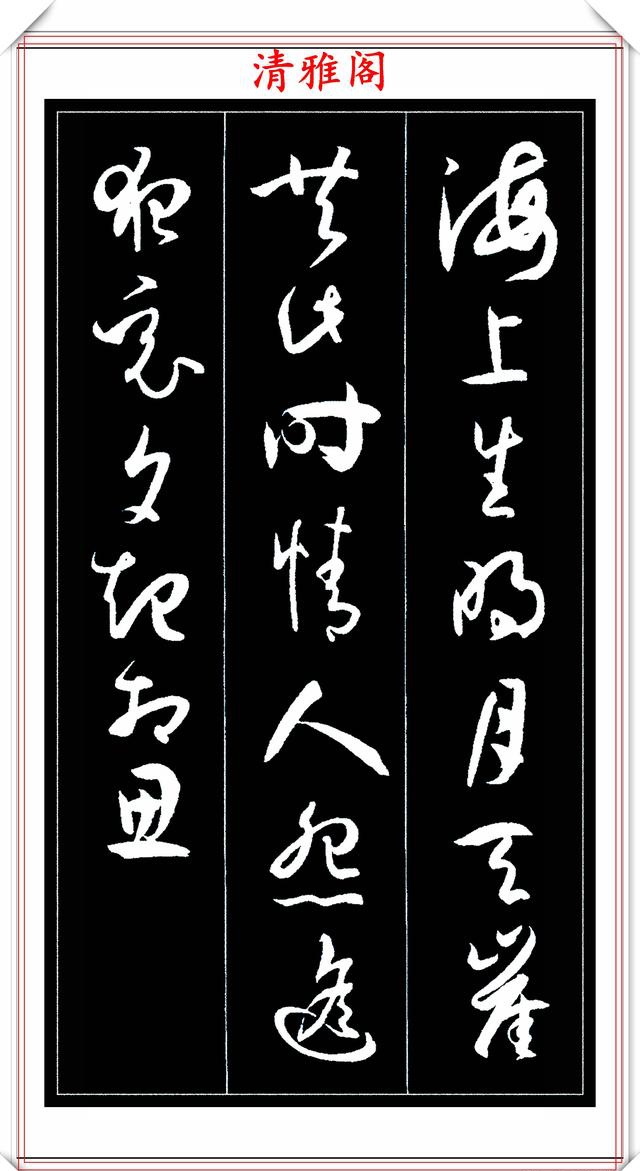 清雅阁
海上生明月天崖
共此时情人怨遥
夜竟夕起相思